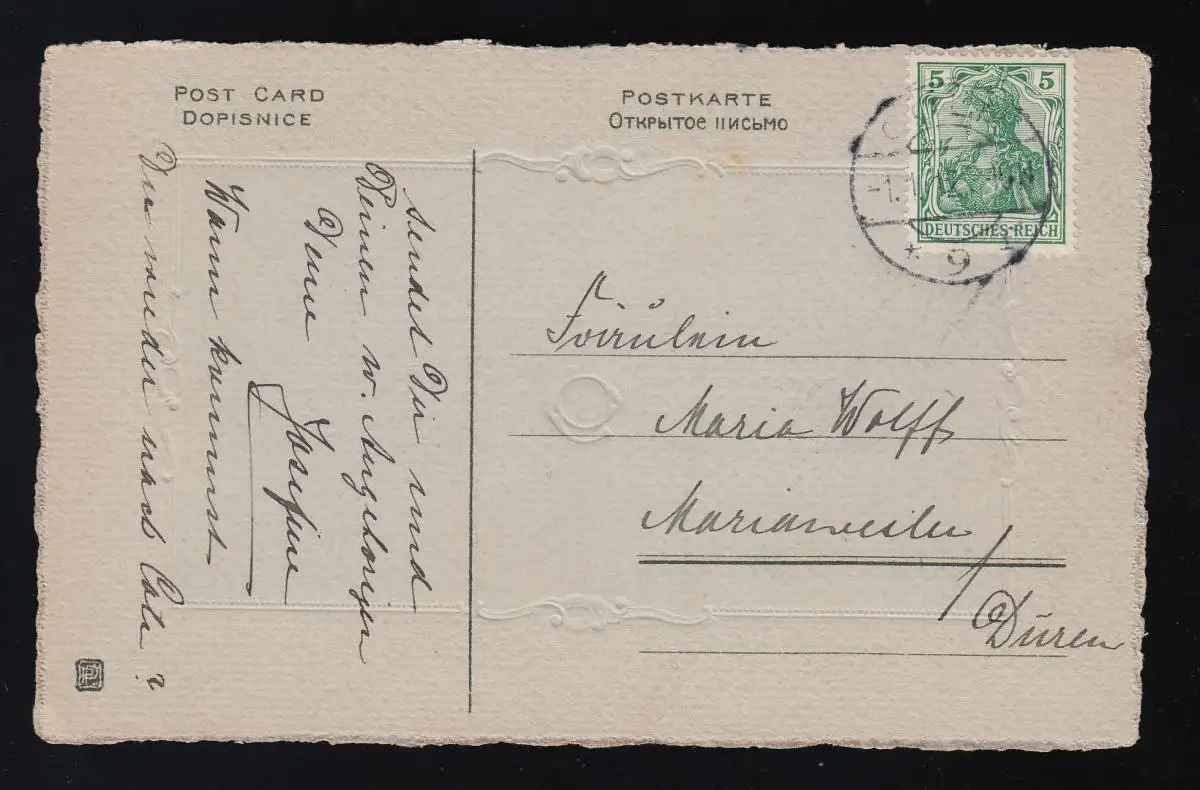 POST CARD
DOPISNICE
POSTKARTE
Открытое письмо
5 5
DEUTSCHES REICH
* 9
sendet Dir und
Deinen w. Angehörigen
Deine
Josefine
Wann kommst
Du wieder nach Cöln?
Fräulein
Maria Wolff
Mariaweiler /
Düren